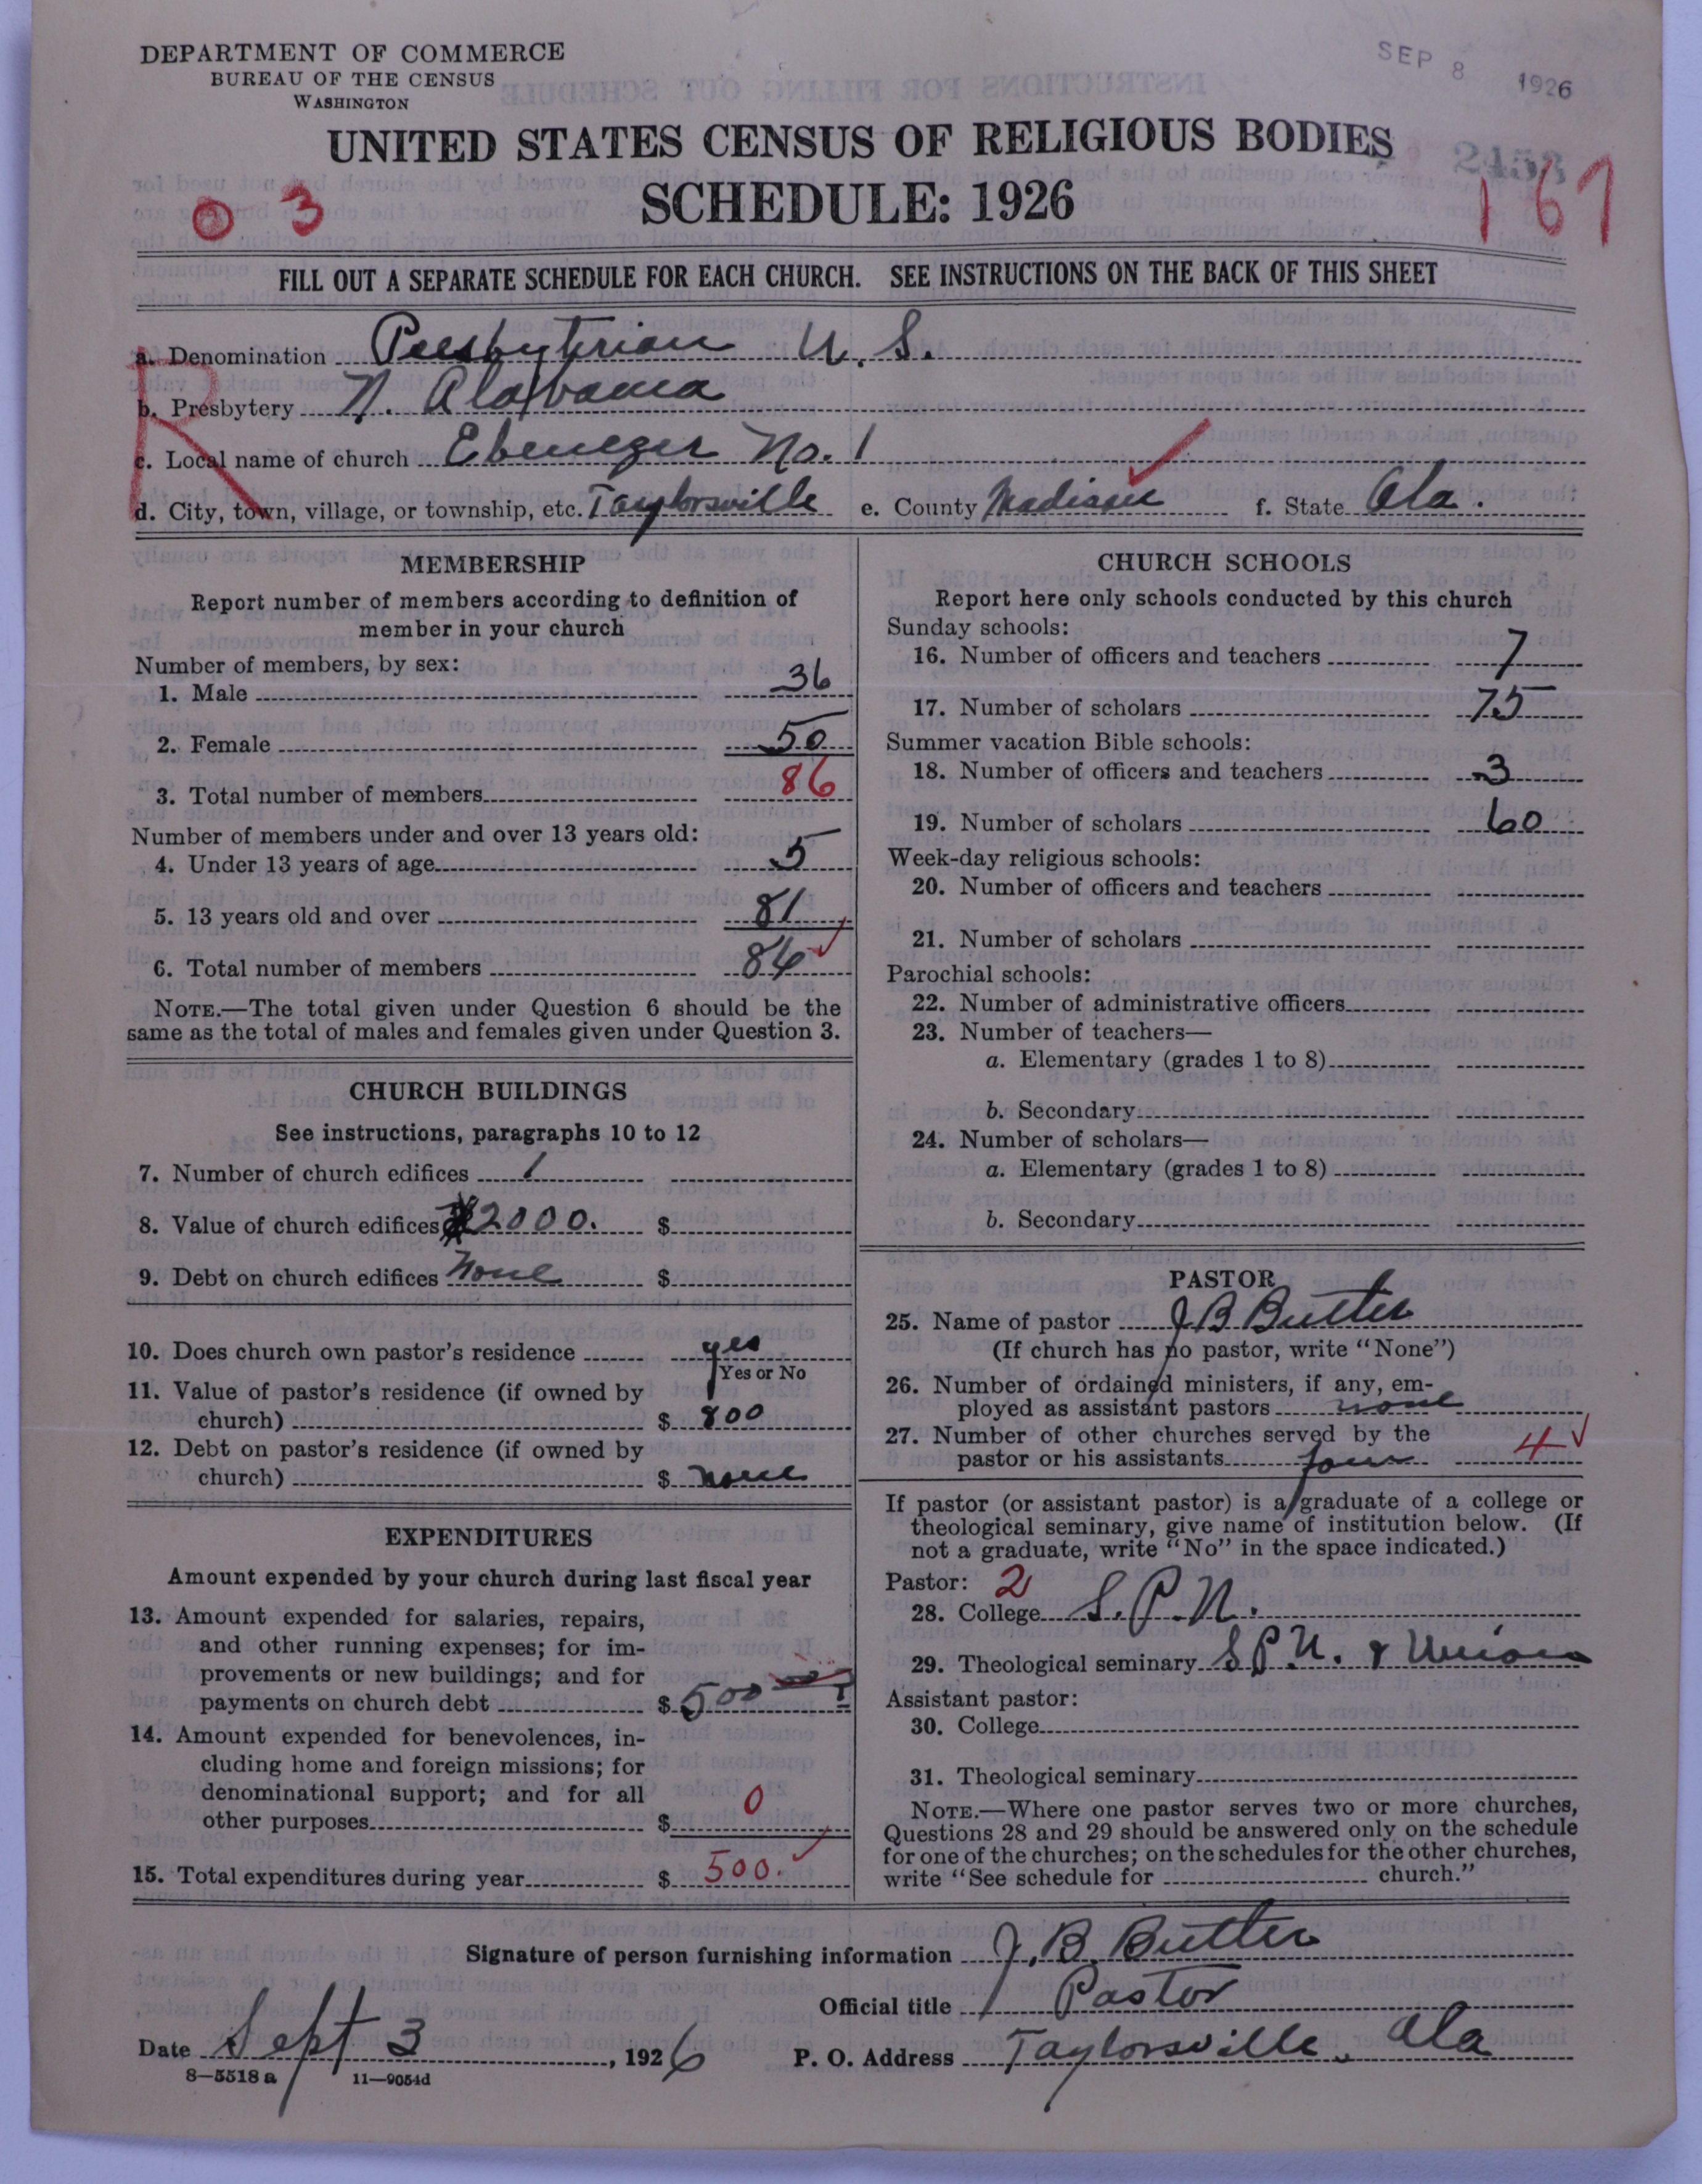 DEPARTMENT OF COMMERCE
BUREAU OF THE CENSUS
WASHINGTON
SEP 8 1926
UNITED STATES CENSUS OF RELIGIOUS BODIES
2453
SCHEDULE: 1926
03
167
FILL OUT A SEPARATE SCHEDULE FOR EACH CHURCH. SEE INSTRUCTIONS ON THE BACK OF THIS SHEET
R
a. Denomination Presbyterian U. S.
b. Presbytery N. Alabama
c. Local name of church Ebenezer No. 1
d. City, town, village, or township, etc. Taylorsville e. County Madison f. State Ala.
MEMBERSHIP
Report number of members according to definition of
member in your church
Number of members, by sex:
1. Male 36
2. Female 50
3. Total number of members 86
Number of members under and over 13 years old:
4. Under 13 years of age 5
5. 13 years old and over 81
6. Total number of members 86
NOTE.—The total given under Question 6 should be the
same as the total of males and females given under Question 3.
CHURCH BUILDINGS
See instructions, paragraphs 10 to 12
7. Number of church edifices 1
8. Value of church edifices $2000. $
9. Debt on church edifices None $
10. Does church own pastor's residence yes
Yes or No
11. Value of pastor's residence (if owned by
church) $ 800
12. Debt on pastor's residence (if owned by
church) $ none
EXPENDITURES
Amount expended by your church during last fiscal year
13. Amount expended for salaries, repairs,
and other running expenses; for im-
provements or new buildings; and for
payments on church debt $ 500
14. Amount expended for benevolences, in-
cluding home and foreign missions; for
denominational support; and for all
other purposes $ 0
15. Total expenditures during year $ 500.
CHURCH SCHOOLS
Report here only schools conducted by this church
Sunday schools:
16. Number of officers and teachers 7
17. Number of scholars 75
Summer vacation Bible schools:
18. Number of officers and teachers 3
19. Number of scholars 60
Week-day religious schools:
20. Number of officers and teachers
21. Number of scholars
Parochial schools:
22. Number of administrative officers
23. Number of teachers—
a. Elementary (grades 1 to 8)
b. Secondary
24. Number of scholars—
a. Elementary (grades 1 to 8)
b. Secondary
PASTOR
25. Name of pastor J B Butler
(If church has no pastor, write "None")
26. Number of ordained ministers, if any, em-
ployed as assistant pastors none
27. Number of other churches served by the
pastor or his assistants four 4
If pastor (or assistant pastor) is a graduate of a college or
theological seminary, give name of institution below. (If
not a graduate, write "No" in the space indicated.)
Pastor: 2
28. College S. P. U.
29. Theological seminary S P U. & Union
Assistant pastor:
30. College
31. Theological seminary
NOTE.—Where one pastor serves two or more churches,
Questions 28 and 29 should be answered only on the schedule
for one of the churches; on the schedules for the other churches,
write "See schedule for church."
Signature of person furnishing information J. B. Butler
Official title Pastor
Date Sept 3, 1926 P. O. Address Taylorsville, Ala
8—5518 a 11—9054d